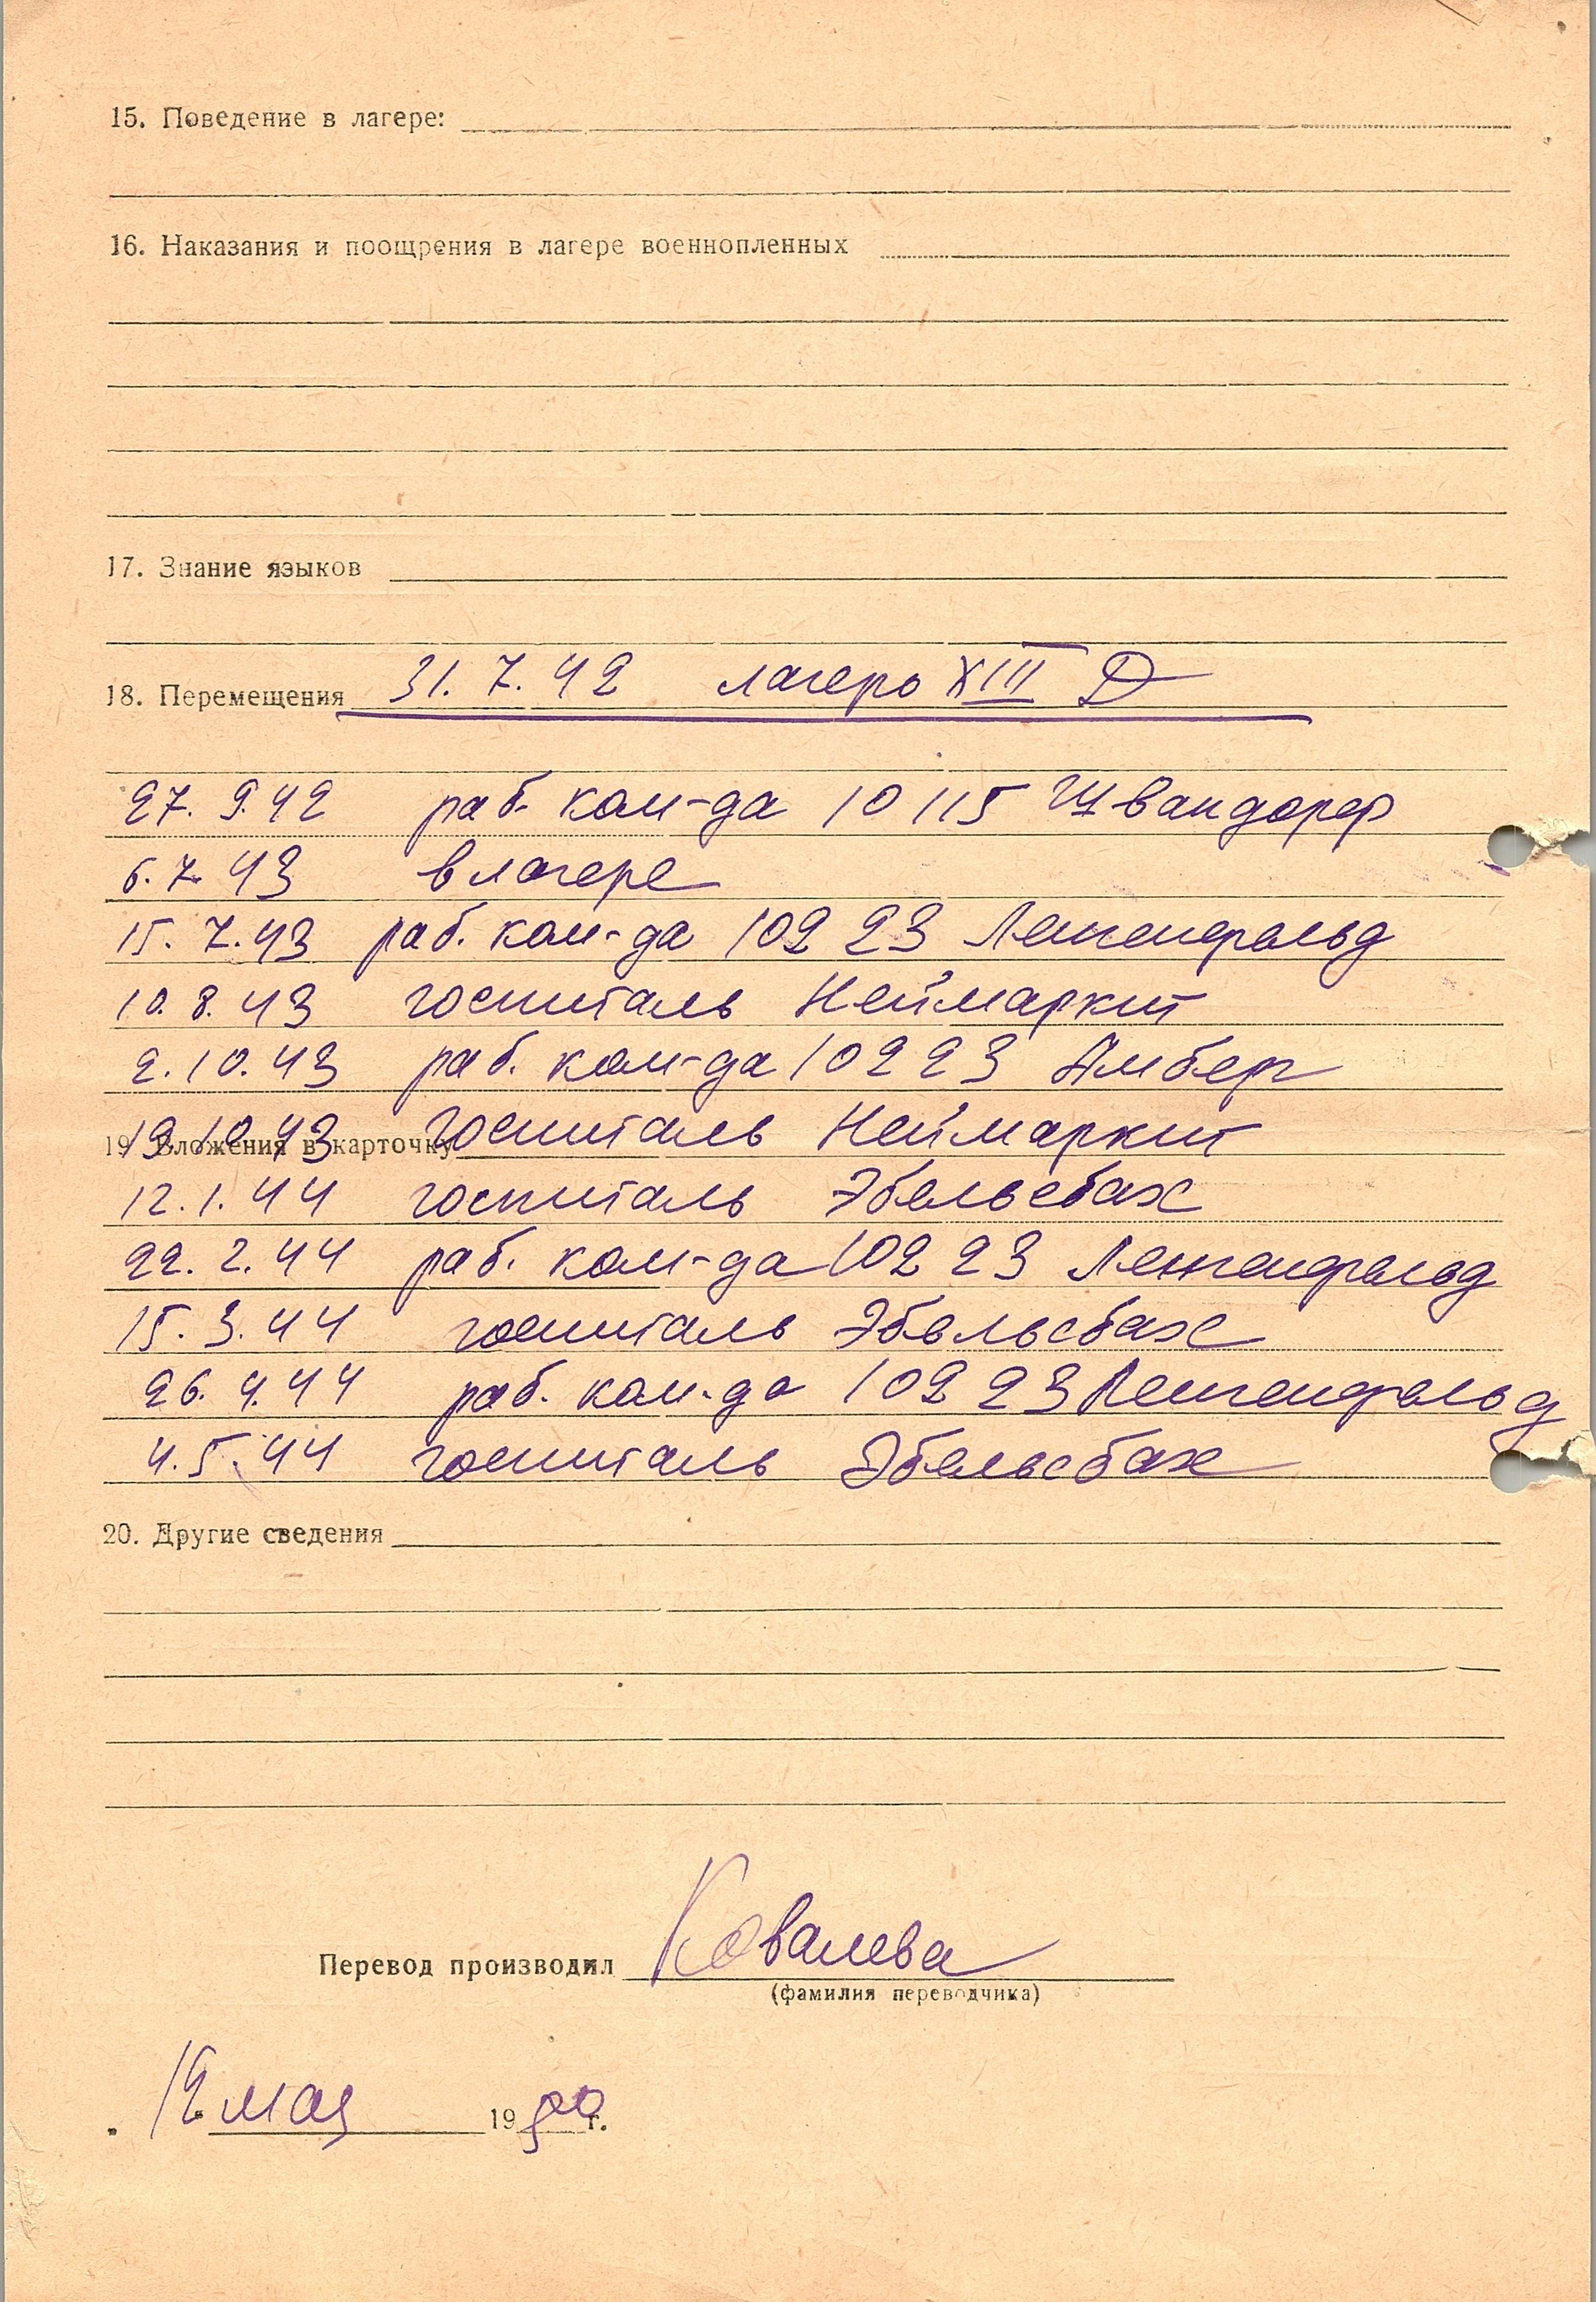 15. Поведение в лагере:
16. Наказания и поощрения в лагере военнопленных
17. Знание языков
18. Перемещения 31. 7. 42 лагерь XIII Д
27. 9. 42 раб. ком-да 10 115 Швандорф
6. 7. 43 в лагере
15. 7. 43 раб. ком-да 102 23 Ленгенфельд
10. 8. 43 госпиталь Неймаркт
2. 10. 43 раб. ком-да 102 23 Амберг
19. 10. 43 госпиталь Неймаркт
19. Вложения в карточку
12. 1. 44 госпиталь Эбельсбах
22. 2. 44 раб. ком-да 102 23 Ленгенфельд
15. 3. 44 госпиталь Эбельсбах
26. 4. 44 раб. ком-да 102 23 Ленгенфельд
4. 5. 44 госпиталь Эбельсбах
20. Другие сведения
Перевод производил Ковалева
(фамилия переводчика)
мая 19 г.